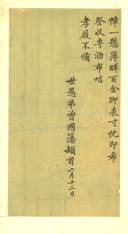 幛一懸薄賻百金聊表寸忱即希
詧收專泐布唁
孝履不備
世愚弟曾國藩頓首二月十二日